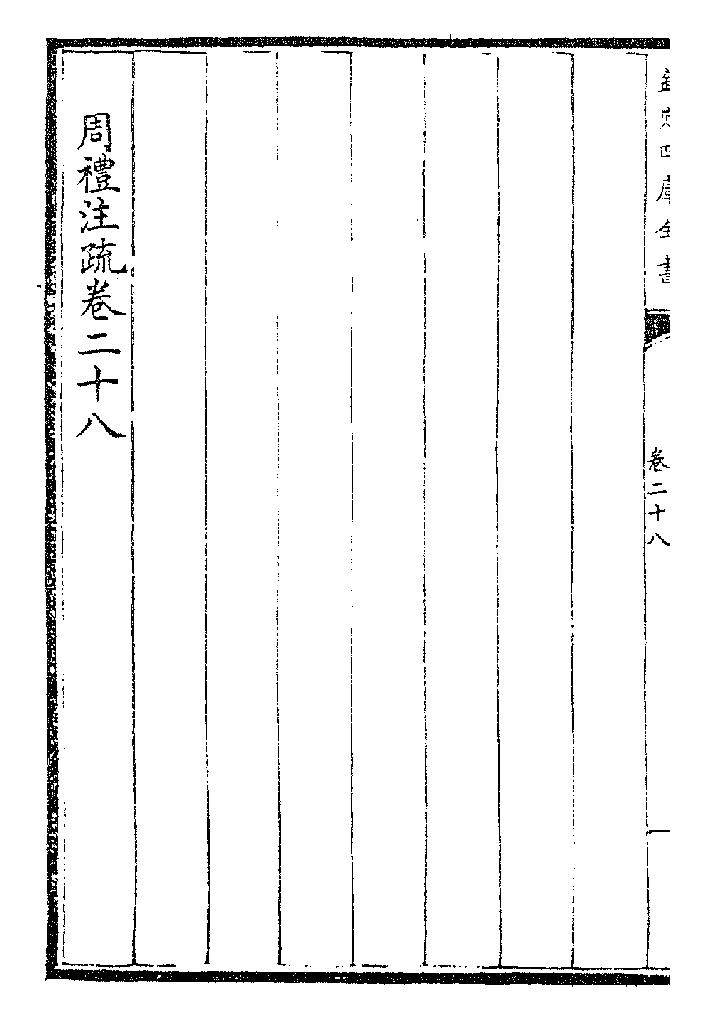 欽定四庫全書
卷二十八
周禮注疏卷二十八